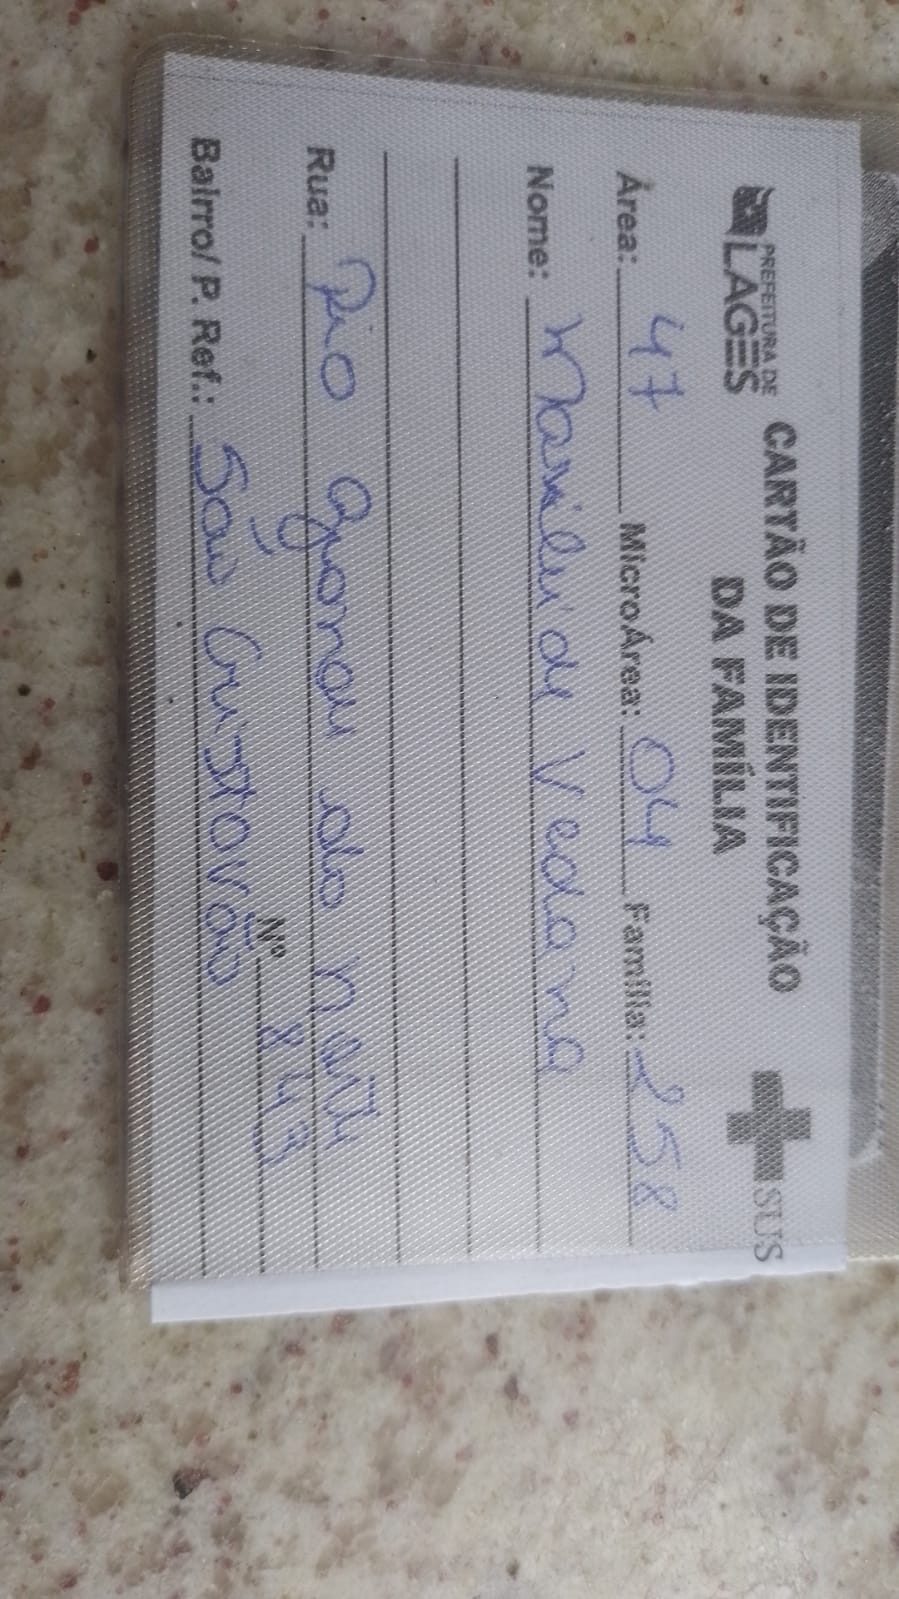 PREFEITURA DE
LAGES
CARTÃO DE IDENTIFICAÇÃO
DA FAMÍLIA
SUS
Área: 47 MicroÁrea: 04 Família: 258
Nome: Marileide Vedana
Rua: Rio do
Nº 843
Bairro/ P. Ref.: São Cristovão